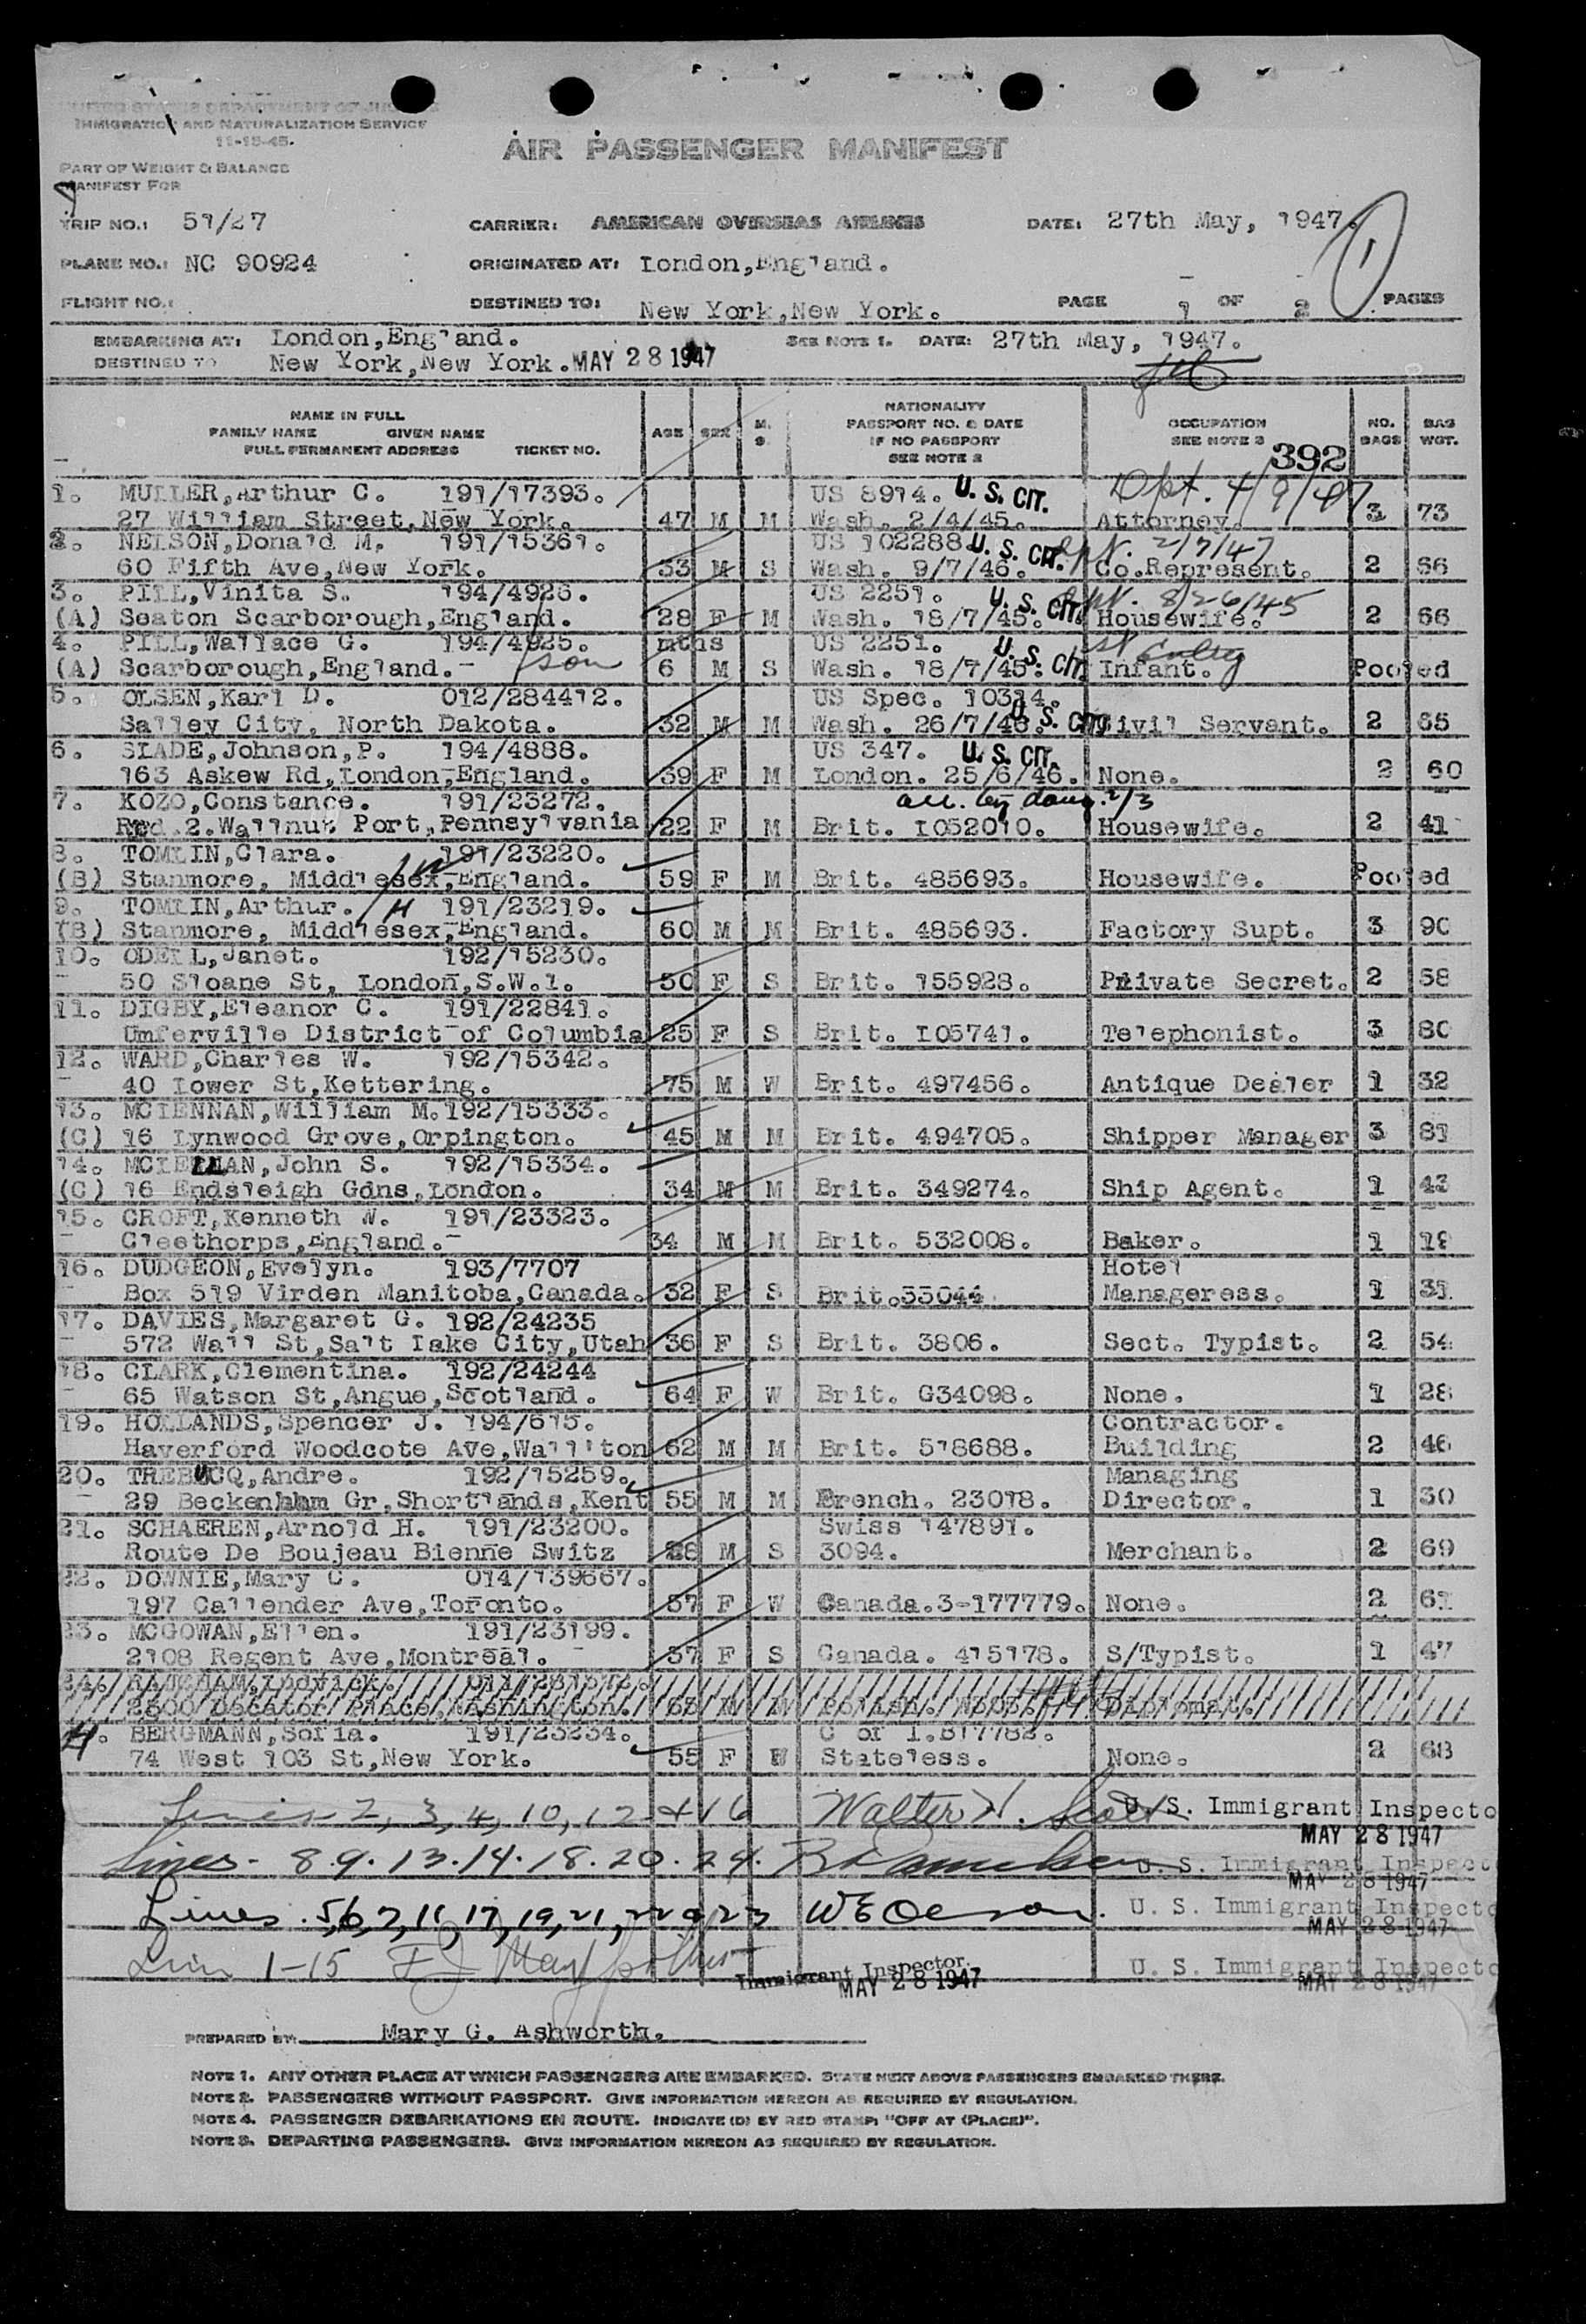 UNITED STATES DEPARTMENT OF JUSTICE
IMMIGRATION AND NATURALIZATION SERVICE
11-15-45.
AIR PASSENGER MANIFEST
PART OF WEIGHT & BALANCE
MANIFEST FOR
TRIP NO.: 51/27 CARRIER: AMERICAN OVERSEAS AIRLINES DATE: 27th May, 1947.
1
PLANE NO.: NC 90924 ORIGINATED AT: London,England.
FLIGHT NO.: DESTINED TO: New York,New York. PAGE 1 OF 2 PAGES
EMBARKING AT: London,England. SEE NOTE 1. DATE: 27th May, 1947.
DESTINED TO New York,New York. MAY 28 1947
NAME IN FULL
FAMILY NAME GIVEN NAME
FULL PERMANENT ADDRESS TICKET NO.
AGE SEX M. S.
NATIONALITY
PASSPORT NO. & DATE
IF NO PASSPORT
SEE NOTE 2
OCCUPATION
SEE NOTE 3
392
NO. BAGS
BAG WGT.
1. MULLER,Arthur C. 191/17393. US 8914. U. S. CIT. Dpt. 4/9/47
27 William Street,New York. 47 M M Wash. 2/4/45. Attorney. 3 73
2. NELSON,Donald M. 191/15361. US 102288 U. S. CIT. 2/7/47
60 Fifth Ave,New York. 33 M S Wash. 9/7/46. Co.Represent. 2 66
3. PILL,Vinita S. 194/4926. US 2251. U. S. CIT. 8/26/45
(A) Seaton Scarborough,England. 28 F M Wash. 18/7/45. Housewife. 2 66
4. PILL,Wallace G. 194/4925. mths US 2251. U. S. CIT.
(A) Scarborough,England. son 6 M S Wash. 18/7/45. Infant. Pooled
5. OLSEN,Karl D. 012/284412. US Spec. 10314.
Salley City, North Dakota. 32 M M Wash. 26/7/46. U. S. CIT. Civil Servant. 2 65
6. SLADE,Johnson,P. 194/4888. US 347. U. S. CIT.
163 Askew Rd,London,England. 39 F M London. 25/6/46. None. 2 60
7. KOZO,Constance. 191/23272.
Ryd.2.Wallnut Port,Pennsylvania 22 F M Brit. I052010. Housewife. 2 41
8. TOMLIN,Clara. 191/23220.
(B) Stanmore, Middlesex,England. 59 F M Brit. 485693. Housewife. Pooled
9. TOMLIN,Arthur. H 191/23219.
(B) Stanmore, Middlesex,England. 60 M M Brit. 485693. Factory Supt. 3 90
10. ODELL,Janet. 192/15230.
50 Sloane St, London,S.W.1. 50 F S Brit. 155928. Private Secret. 2 58
11. DIGBY,Eleanor C. 191/22841.
Umferville District of Columbia 25 F S Brit. I05741. Telephonist. 3 80
12. WARD,Charles W. 192/15342.
40 Lower St,Kettering. 75 M W Brit. 497456. Antique Dealer 1 32
13. MCLENNAN,William M. 192/15333.
(C) 16 Lynwood Grove,Orpington. 45 M M Brit. 494705. Shipper Manager 3 81
14. MCLELLAN,John S. 192/15334.
(C) 16 Endsleigh Gdns,London. 34 M M Brit. 349274. Ship Agent. 1 43
15. CROFT,Kenneth W. 191/23323.
Cleethorps,England. 34 M M Brit. 532008. Baker. 1 19
16. DUDGEON,Evelyn. 193/7707 Hotel
Box 519 Virden Manitoba,Canada. 32 F S Brit.55044 Manageress. 1 31
17. DAVIES,Margaret G. 192/24235
572 Wall St,Salt Lake City,Utah 36 F S Brit. 3806. Sect. Typist. 2 54
18. CLARK,Clementina. 192/24244
65 Watson St,Angue,Scotland. 64 F W Brit. G34098. None. 1 28
19. HOLLANDS,Spencer J. 194/615. Contractor.
Haverford Woodcote Ave,Wall'ton 62 M M Brit. 518688. Building 2 46
20. TREBUCQ,Andre. 192/15259. Managing
29 Beckenham Gr,Shortlands,Kent 55 M M French. 23018. Director. 1 30
21. SCHAEREN,Arnold H. 191/23200. Swiss 147891.
Route De Boujeau Bienne Switz 28 M S 3094. Merchant. 2 69
22. DOWNIE,Mary C. 014/139667.
197 Callender Ave,Toronto. 57 F W Canada.3-177779. None. 2 61
23. MCGOWAN,Ellen. 191/23199.
2108 Regent Ave,Montreal. 37 F S Canada. 415178. S/Typist. 1 47
24.
2300 Decator Place,Washington. M M Polish. Diplomat.
BERGMANN,Sofia. 191/23234. C of I.517782.
74 West 103 St,New York. 55 F W Stateless. None. 2 68
Lines 2, 3, 4, 10, 12 + 16 Walter H. Scott U. S. Immigrant Inspecto
MAY 28 1947
Lines - 8.9.13.14.18.20.24. U. S. Immigrant Inspect
MAY 28 1947
Lines . 5,6,7,11,17,19,21,22 & 23 W E Olson. U. S. Immigrant Inspecto
MAY 28 1947
1-15 U. S. Immigrant Inspecto
Immigrant Inspector.
MAY 28 1947 MAY 28 1947
PREPARED BY: Mary G. Ashworth.
NOTE 1. ANY OTHER PLACE AT WHICH PASSENGERS ARE EMBARKED. STATE NEXT ABOVE PASSENGERS EMBARKED THERE.
NOTE 2. PASSENGERS WITHOUT PASSPORT. GIVE INFORMATION HEREON AS REQUIRED BY REGULATION.
NOTE 4. PASSENGER DEBARKATIONS EN ROUTE. INDICATE (D) BY RED STAMP: "OFF AT (PLACE)".
NOTE 3. DEPARTING PASSENGERS. GIVE INFORMATION HEREON AS REQUIRED BY REGULATION.